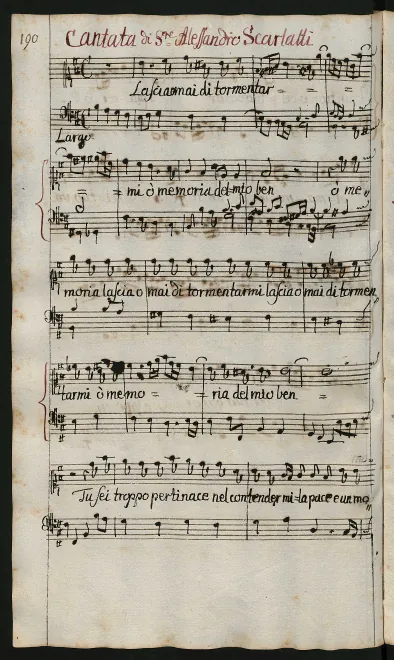 190 Cantata di S.re Alessandro Scarlatti
Lascia omai di tormentar
Largo
mi ò memoria del mio ben ò me
moria lascia o mai di tormentarmi lascia o mai di tormen
tarmi ò memo ria del mio ben
Tu sei troppo pertinace nel contender mi la pace e un mo